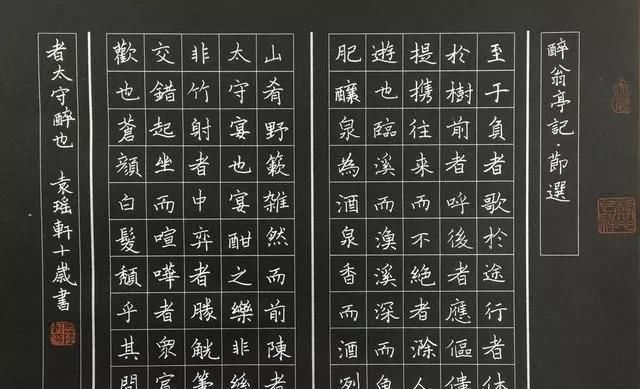 醉翁亭記·節選
至于負者歌於途行者休
於樹前者呼後者應傴僂
提携往來而不絕者滁人
遊也臨溪而漁溪深而魚
肥釀泉為酒泉香而酒洌
山肴野蔌雜然而前陳者
太守宴也宴酣之樂非絲
非竹射者中弈者勝觥籌
交錯起坐而喧嘩者眾賓
歡也蒼顏白髮頹乎其間
者太守醉也 袁瑤軒十歲書